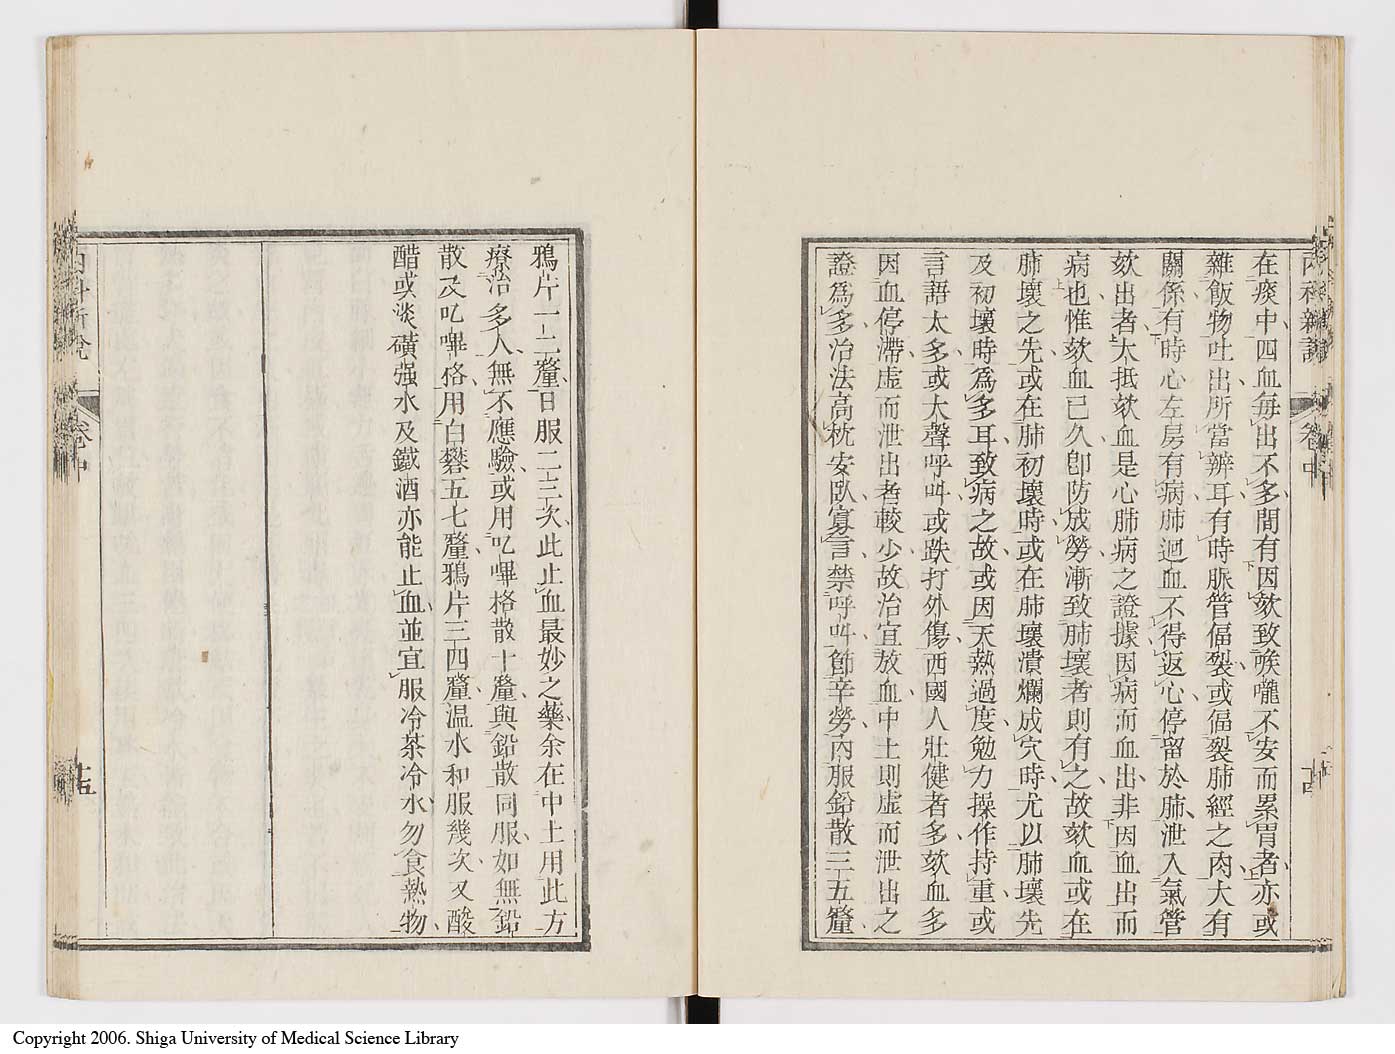 在痰中四血每出不多間有因欬致喉嚨不安而累胃者亦或
雜飯物吐出所當辨耳有時脈管偪裂或偪裂肺經之肉大有
關係有時心左房有病肺迴血不得返心停畱於肺泄入氣管
欬出者大抵欬血是心肺病之證據因病而血出非因血出而
病也惟欬血已久卽防成勞漸致肺壞者則有之故欬血或在
肺壞之先或在肺初壞時或在肺壞潰爛成穴時尤以肺壞先
及初壞時爲多耳致病之故或因天熱過度勉力操作持重或
言語太多或大聲呼叫或跌打外傷西國人壯健者多欬血多
因血停滯虛而泄出者較少故治宜放血中土則虛而泄出之
證爲多治法高枕安臥寡言禁呼叫節辛勞內服鉛散三五釐
內科新說
卷中
十四
鴉片一二釐日服二三次此止血最妙之藥余在中土用此方
療治多人無不應驗或用叱嗶格散十釐與鉛散同服如無鉛
散及叱嗶佫用白礬五七釐鴉片三四釐温水和服幾次又酸
醋或淡磺强水及鐵酒亦能止血並宜服冷茶冷水勿食熱物
內科新說
卷中
十五
Copyright 2006. Shiga University of Medical Science Library